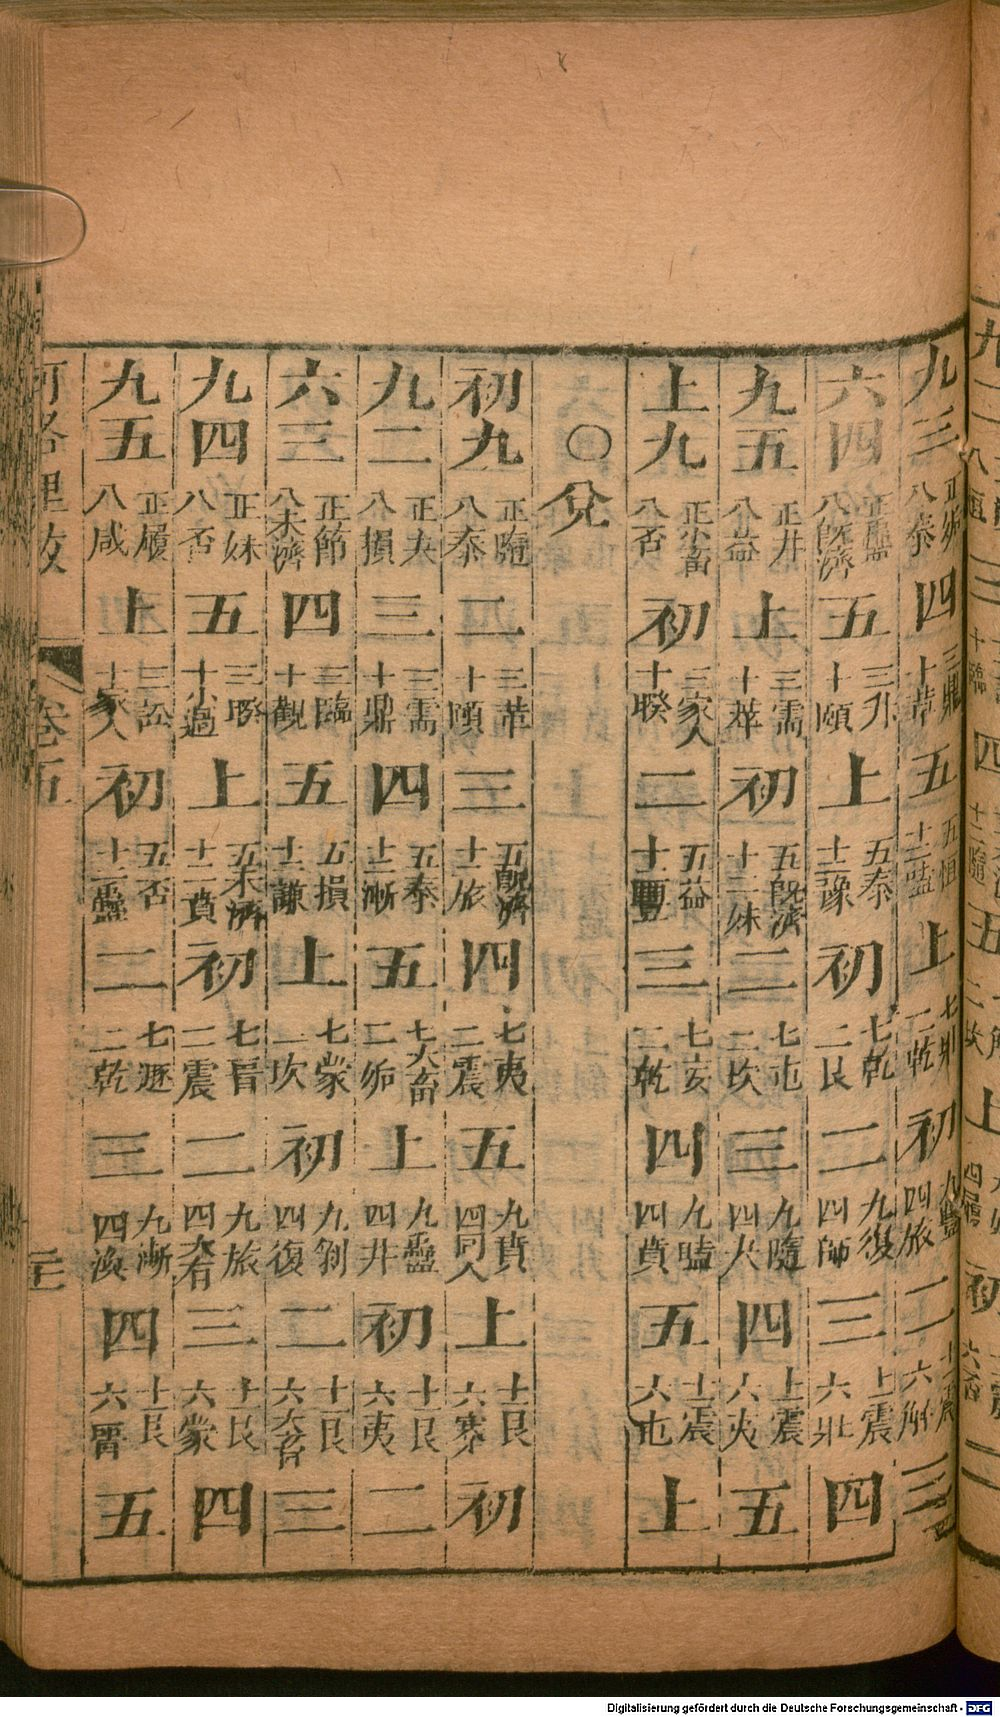 九三 八泰 四 三鼎十革 五 五恒十二嗑 上 二乾 初 九豐四旅 二 十一震六解 三
六四 八既濟 五 三升十頤 上 五泰十二豫 初 七乾二艮 二 九復四師 三 十一震六壯 四
九五 正井八益 上 三需十萃 初 五既濟十二妹 二 七屯二坎 三 九隨四大 四 十一震六夬 五
上九 正小畜八否 初 三家人十睽 二 五益十二豐 三 七妄二乾 四 九嗑四賁 五 十一震六屯 上
○兌
初九 正隨八泰 二 三革十頤 三 五既濟十二旅 四 七夷二震 五 九賁四同人 上 十一艮六蹇 初
九二 正夬八損 三 三需十鼎 四 五泰十二漸 五 七大畜二姤 上 九蠱四井 初 十一艮六夷 二
六三 正節八未濟 四 三臨十觀 五 五損十二謙 上 七蒙二坎 初 九剝四復 二 十一艮六大有 三
九四 正妹八否 五 三睽十小過 上 五未濟十二賁 初 七晉二震 二 九旅四大有 三 十一艮六蒙 四
九五 正履八咸 上 三訟十家人 初 五否十二蠱 二 七遯二乾 三 九漸四渙 四 十一艮六晉 五
河洛理數 卷五
Digitalisierung gefördert durch die Deutsche Forschungsgemeinschaft - DFG